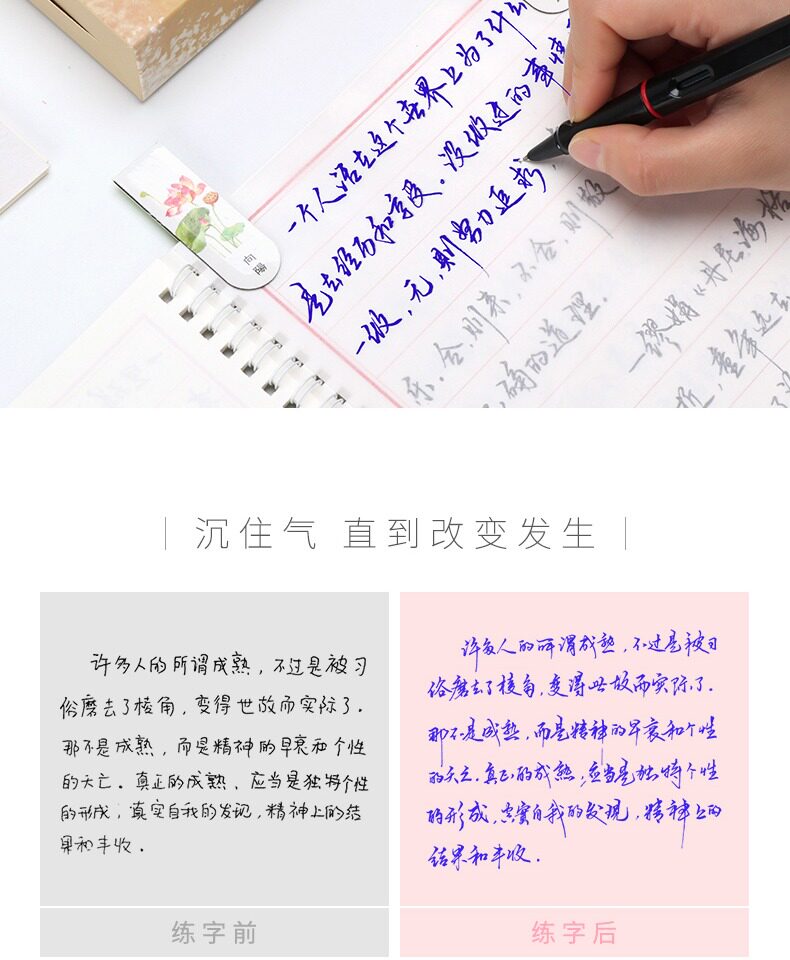 一个人活在这个世界上为了什么
是去经历和享受。没做过的事情
一做，元，则努力追求，
乐，合，则来，不合，则散
确的道理．
一缪娟《丹尼海格
向陽
沉住气 直到改变发生
许多人的所谓成熟，不过是被习
俗磨去了棱角，变得世故而实际了．
那不是成熟，而是精神的早衰和个性
的夭亡．真正的成熟，应当是独特个性
的形成，真实自我的发现，精神上的结
果和丰收．
许多人的所谓成熟，不过是被习
俗磨去了棱角，变得世故而实际了．
那不是成熟，而是精神的早衰和个性
的夭亡．真正的成熟，应当是独特个性
的形成，真实自我的发现，精神上的
结果和丰收．
练字前
练字后